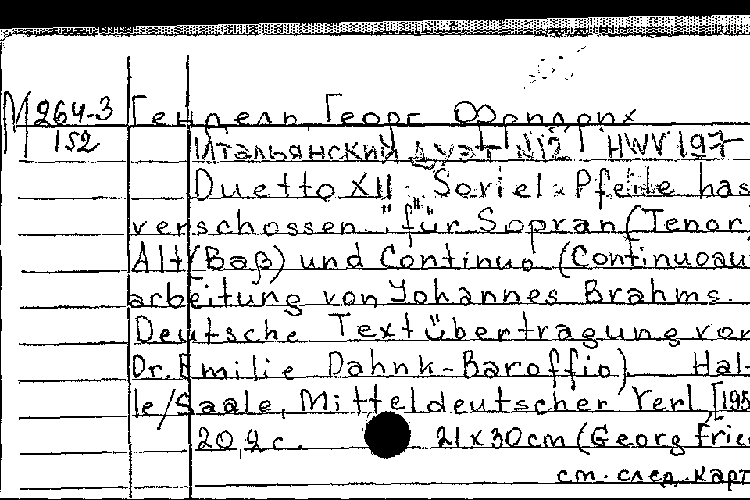 М 264-3 Гендель Георг Фридрих
152 Итальянский дуэт №12 HWV 197
Duetto XII. Soviel Pfeile has
verschossen" für Sopran (Tenor,
Alt (Baß) und Continuo (Continuoau
arbeitung von Johannes Brahms.
Deutsche Textübertragung von
Dr. Emilie Dahnk-Baroffio) Hal-
le/Saale, Mitteldeutscher Verl., [195
20, 2 с. 21x30cm (Georg Frie
см. след. карт